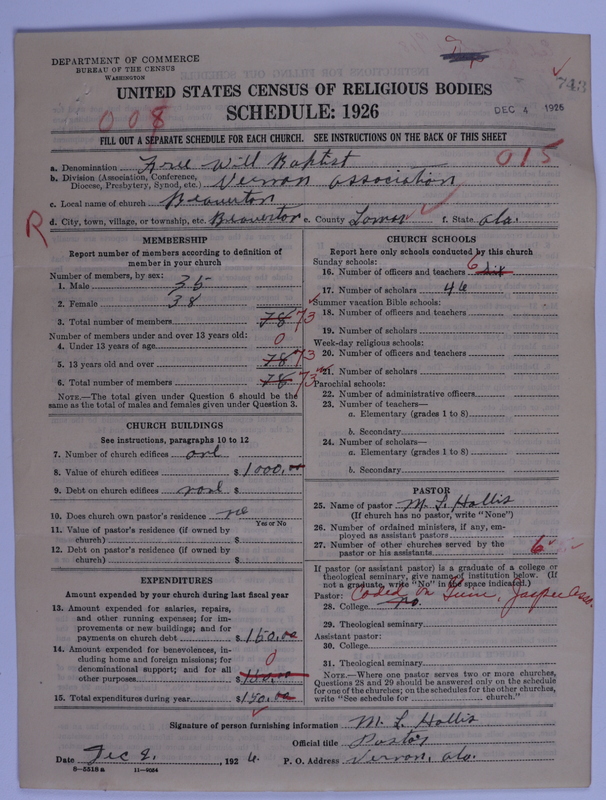 DEPARTMENT OF COMMERCE
BUREAU OF THE CENSUS
WASHINGTON
743
UNITED STATES CENSUS OF RELIGIOUS BODIES
SCHEDULE: 1926
DEC 4 1926
008
FILL OUT A SEPARATE SCHEDULE FOR EACH CHURCH. SEE INSTRUCTIONS ON THE BACK OF THIS SHEET
015
a. Denomination Free Will Baptist
b. Division (Association, Conference, Diocese, Presbytery, Synod, etc.) Vernon association
c. Local name of church Beaverton
R
d. City, town, village, or township, etc. Beaverton e. County Lamar f. State Ala.
MEMBERSHIP
Report number of members according to definition of member in your church
Number of members, by sex:
1. Male 35
2. Female 38
3. Total number of members 78 73
Number of members under and over 13 years old:
4. Under 13 years of age 0
5. 13 years old and over 78 73
6. Total number of members 78 73
NOTE.—The total given under Question 6 should be the same as the total of males and females given under Question 3.
CHURCH BUILDINGS
See instructions, paragraphs 10 to 12
7. Number of church edifices one
8. Value of church edifices $1000.00
9. Debt on church edifices none $
10. Does church own pastor's residence no
Yes or No
11. Value of pastor's residence (if owned by church) $
12. Debt on pastor's residence (if owned by church) $
EXPENDITURES
Amount expended by your church during last fiscal year
13. Amount expended for salaries, repairs, and other running expenses; for improvements or new buildings; and for payments on church debt $150.00
14. Amount expended for benevolences, including home and foreign missions; for denominational support; and for all other purposes $ 0
15. Total expenditures during year $150.00
CHURCH SCHOOLS
Report here only schools conducted by this church
Sunday schools:
16. Number of officers and teachers 6 six
17. Number of scholars 46
Summer vacation Bible schools:
18. Number of officers and teachers
19. Number of scholars
Week-day religious schools:
20. Number of officers and teachers
21. Number of scholars
Parochial schools:
22. Number of administrative officers
23. Number of teachers—
a. Elementary (grades 1 to 8)
b. Secondary
24. Number of scholars—
a. Elementary (grades 1 to 8)
b. Secondary
PASTOR
25. Name of pastor M. L. Hollis
(If church has no pastor, write "None")
26. Number of ordained ministers, if any, employed as assistant pastors
27. Number of other churches served by the pastor or his assistants 6
If pastor (or assistant pastor) is a graduate of a college or theological seminary, give name of institution below. (If not a graduate, write "No" in the space indicated.)
Pastor: Coded on June, Jasper Asso.
28. College No
29. Theological seminary
Assistant pastor:
30. College
31. Theological seminary
NOTE.—Where one pastor serves two or more churches, Questions 28 and 29 should be answered only on the schedule for one of the churches; on the schedules for the other churches, write "See schedule for church."
Signature of person furnishing information M. L. Hollis
Official title Pastor
Date Dec 2, 1926. P. O. Address Vernon, Ala.
8—5518a 11—9064